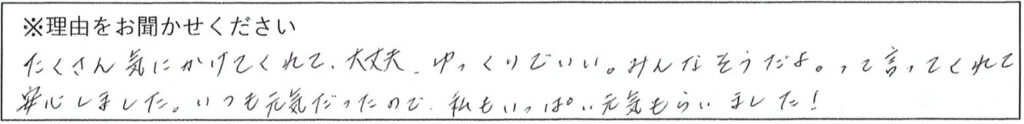 ※理由をお聞かせください
たくさん気にかけてくれて、大丈夫、ゆっくりでいい。みんなそうだよ。って言ってくれて
安心しました。いつも元気だったので、私もいっぱい元気もらいました!